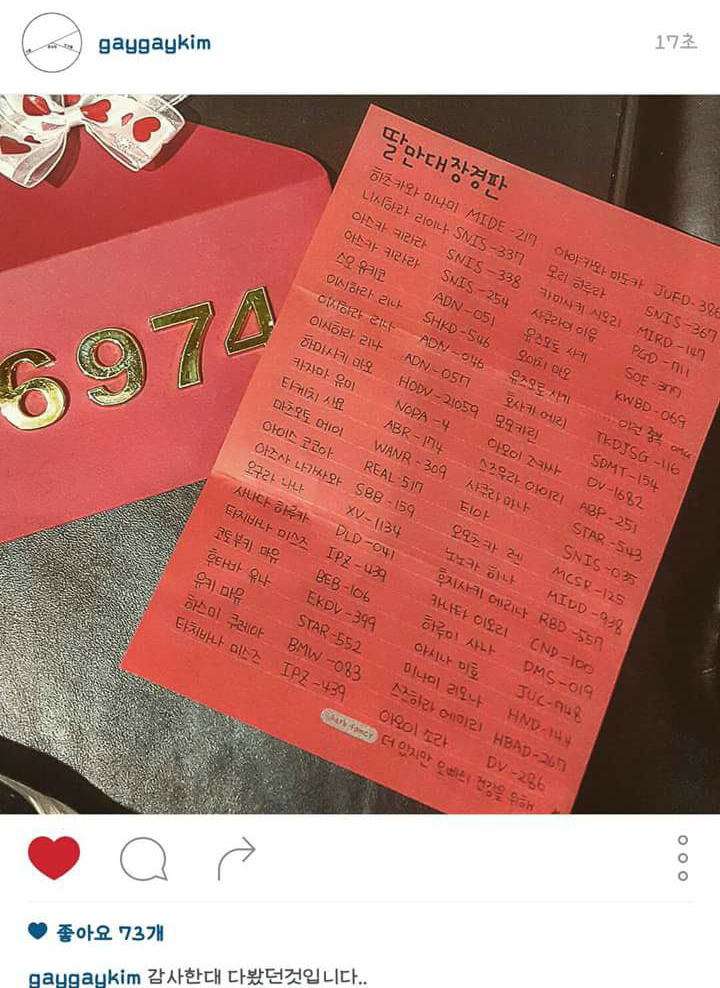 gaygaykim
17초
6974
딸만대장경판
하즈키와 미나미 MIDE-217
니시하라 리이나 SNIS-337
아스카 키라라 SNIS-338
아스카 키라라 SNIS-254
스오 유키코 ADN-051
이시하라 리나 SHKD-546
이시하라 리나 ADN-046
이시하라 리나 ADN-057
하마사키 마오 HODV-21059
카자마 유미 NOPA-4
타케치 사요 ABR-174
마츠모토 메이 WANR-309
아이스 코코아 REAL-517
아즈사 나가사와 SBB-159
오구라 나나 XV-1134
사나다 하루카 DLD-041
타치바나 미스즈 IPZ-439
코토부키 마유 BEB-106
후타바 유나 EKDV-399
유키 마유 STAR-552
하스미 쿠레아 BMW-083
타치바나 미스즈 IPZ-439
아야카와 마도카 JUFD-386
모리 하루라 SNIS-367
카미사키 시오리 MIRD-147
사쿠라이 아유 PGD-711
유즈모토 사키 SOE-377
오이치 마오 KWBD-069
유즈모토 사키
호사키 에리 TKDJSG-116
모모카린 SDMT-154
아오이 츠카사 DV-1682
스즈무라 아이리 ABP-251
사쿠라 마나 STAR-543
티아 SNIS-035
오오츠카 렌 MCSR-125
노노카 히나 MIDD-938
후지사키 에리나 RBD-557
카나타 이오리 CND-100
하루미 사나 DMS-019
아시나 미호 JUC-748
미나미 리오나 HND-144
스즈하라 에미리 HBAD-267
아오이 소라 DV-286
더 있지만 오빠의 건강을 위해
dark fancy
좋아요 73개
gaygaykim 감사한대 다봤던것입니다..